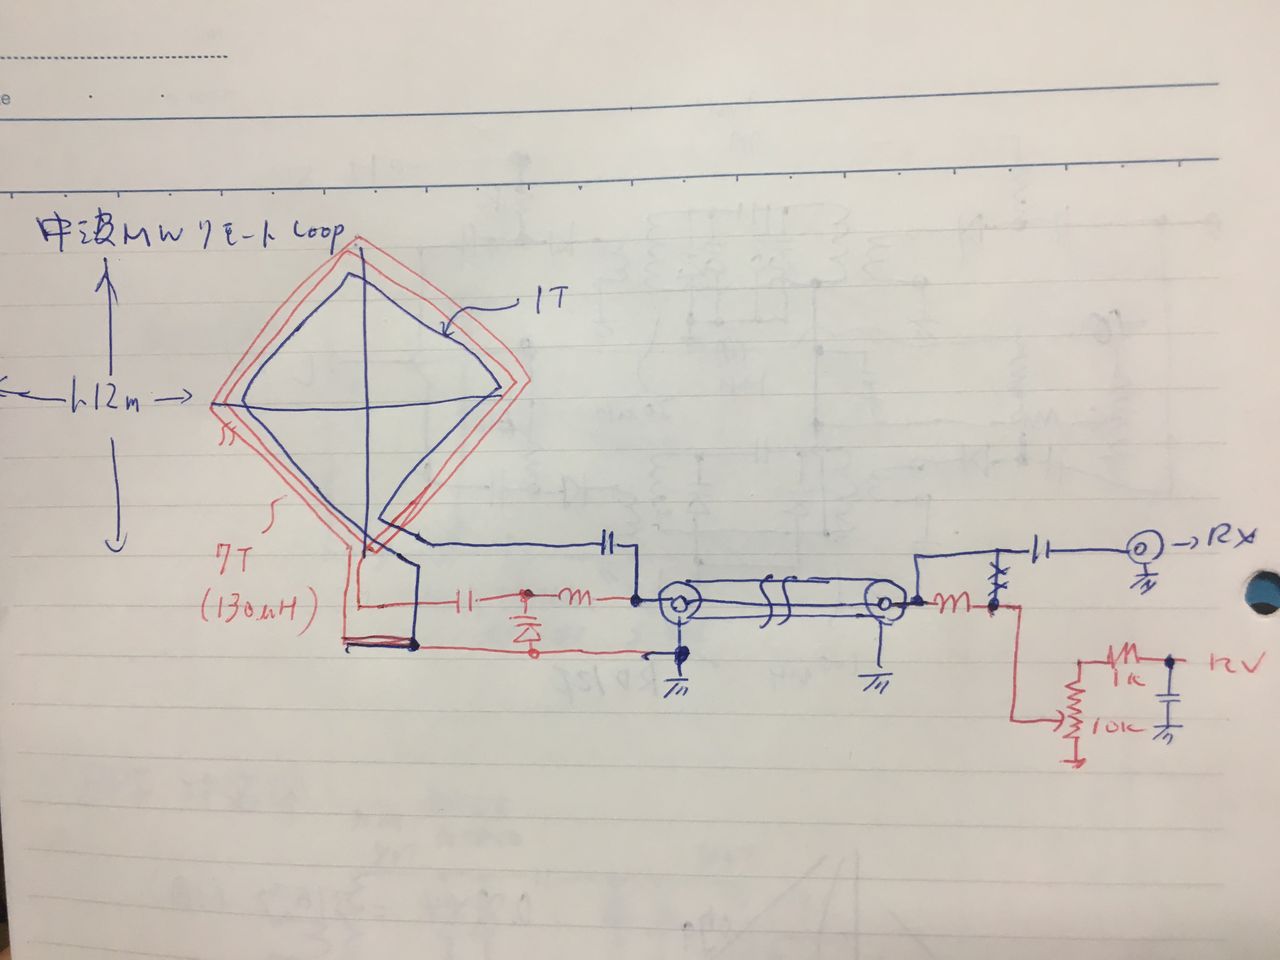 中波MWリモートLoop
1T
1.12m
7T
(130μH)
→RX
1K
12V
10K